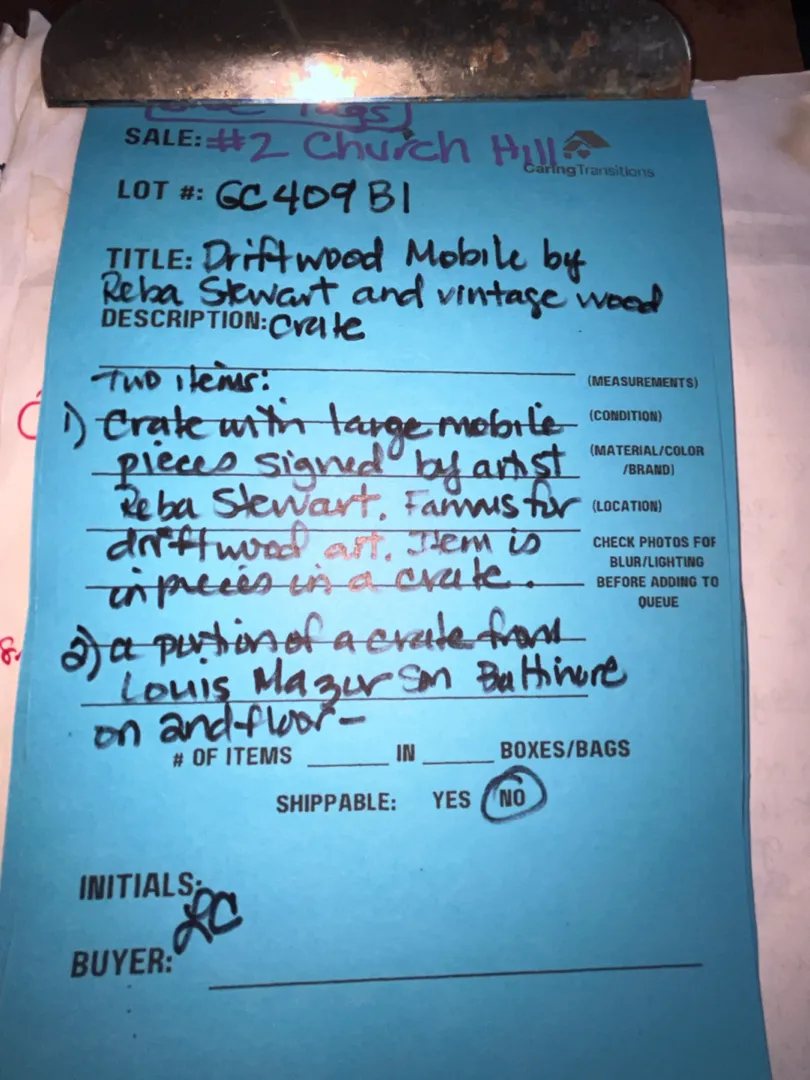 Tags
SALE: #2 Church Hill
CaringTransitions
LOT #: GC409B1
TITLE: Driftwood Mobile by
Reba Stewart and vintage wood
DESCRIPTION: crate
Two items:
(MEASUREMENTS)
1) Crate with large mobile
(CONDITION)
pieces signed by artist
(MATERIAL/COLOR
/BRAND)
Reba Stewart. Famous for
(LOCATION)
driftwood art. Item is
in pieces in a crate.
CHECK PHOTOS FOR
BLUR/LIGHTING
BEFORE ADDING TO
QUEUE
2) a portion of a crate from
Louis Mazur Son Baltimore
on 2nd floor-
# OF ITEMS ______ IN ______ BOXES/BAGS
SHIPPABLE: YES NO
INITIALS: LC
BUYER: